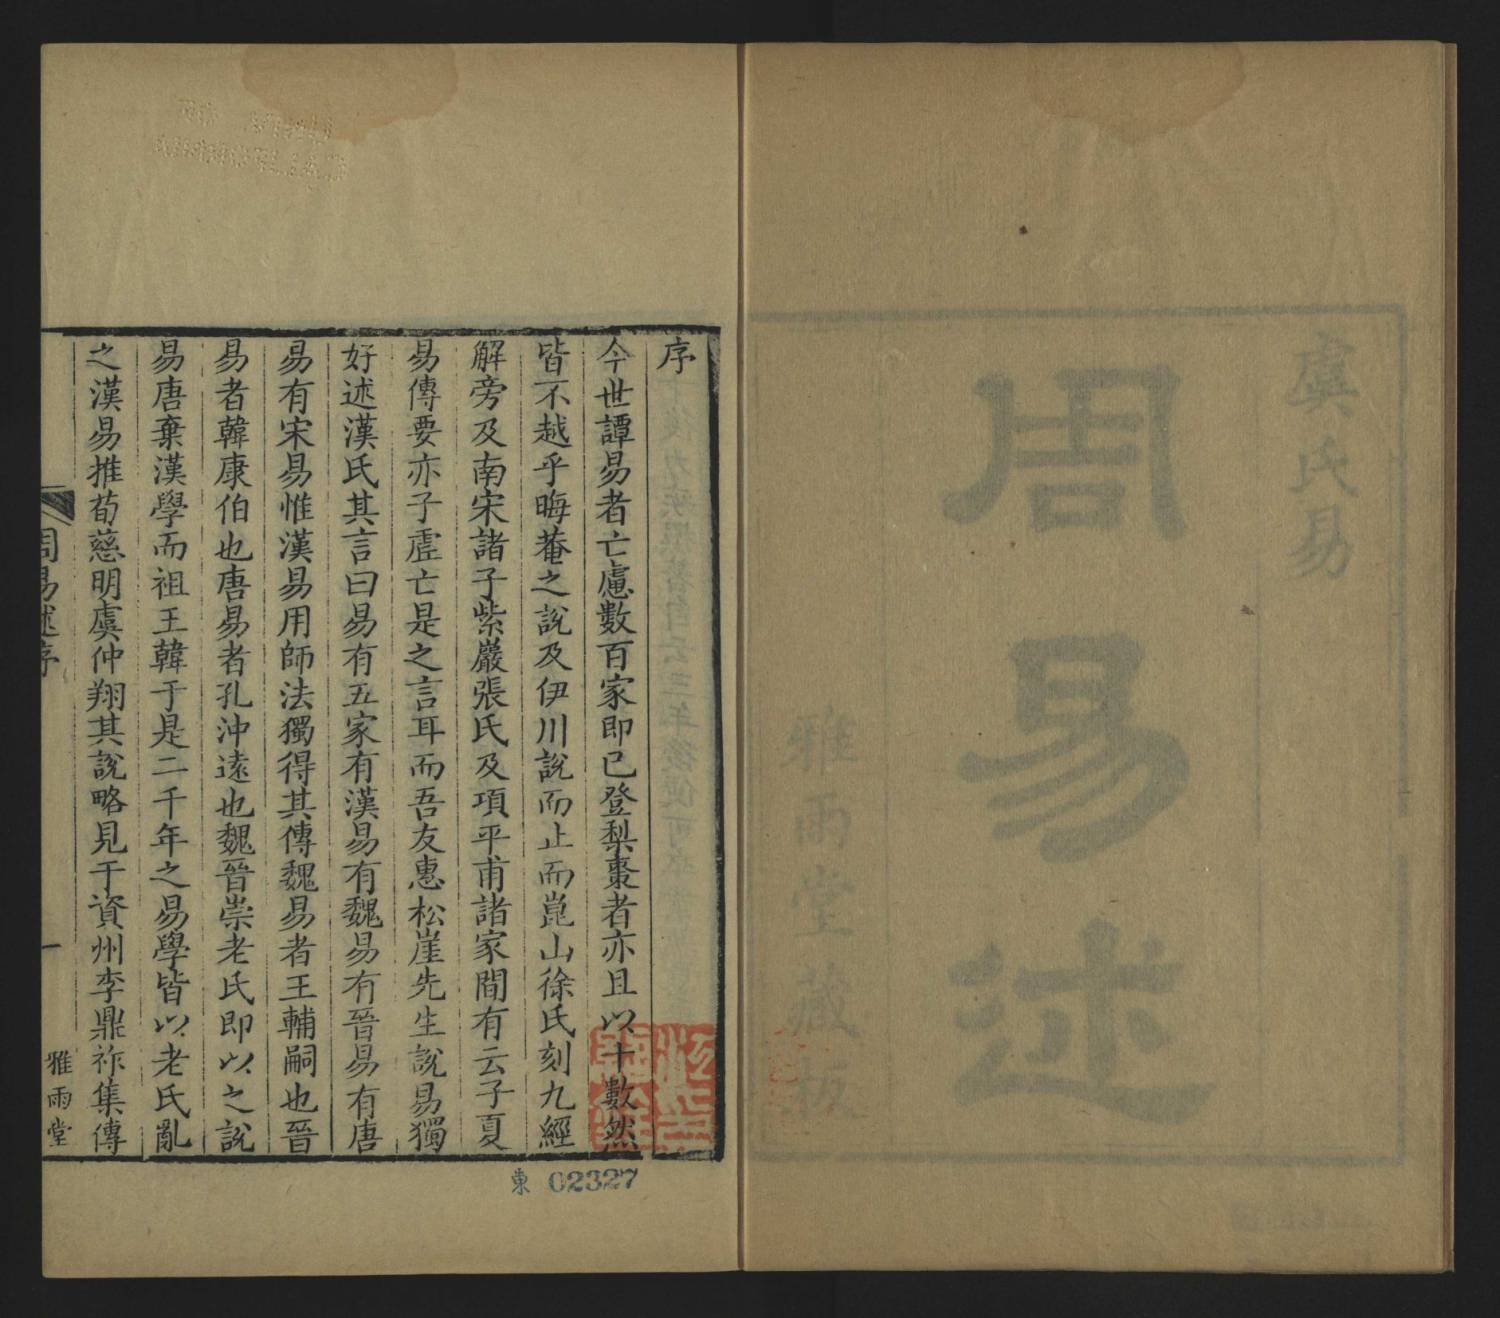 虞氏易
周易述
雅雨堂藏板
序
今世譚易者亡慮數百家即已登梨棗者亦且以十數然
皆不越乎晦菴之說及伊川說而止而崑山徐氏刻九經
解旁及南宋諸子紫巖張氏及項平甫諸家間有云子夏
易傳要亦子虛亡是之言耳而吾友惠松崖先生說易獨
好述漢氏其言曰易有五家有漢易有魏易有晉易有唐
易有宋易惟漢易用師法獨得其傳魏易者王輔嗣也晉
易者韓康伯也唐易者孔沖遠也魏晉崇老氏即以之說
易唐棄漢學而祖王韓于是二千年之易學皆以老氏亂
之漢易推荀慈明虞仲翔其說略見于資州李鼎祚集傳
周易述序
一
雅雨堂
東 02327